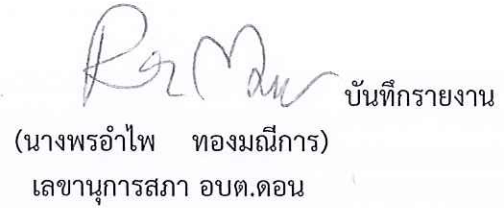 บันทึกรายงาน
(นางพรอำไพ ทองมณีการ)
เลขานุการสภา อบต.ดอน